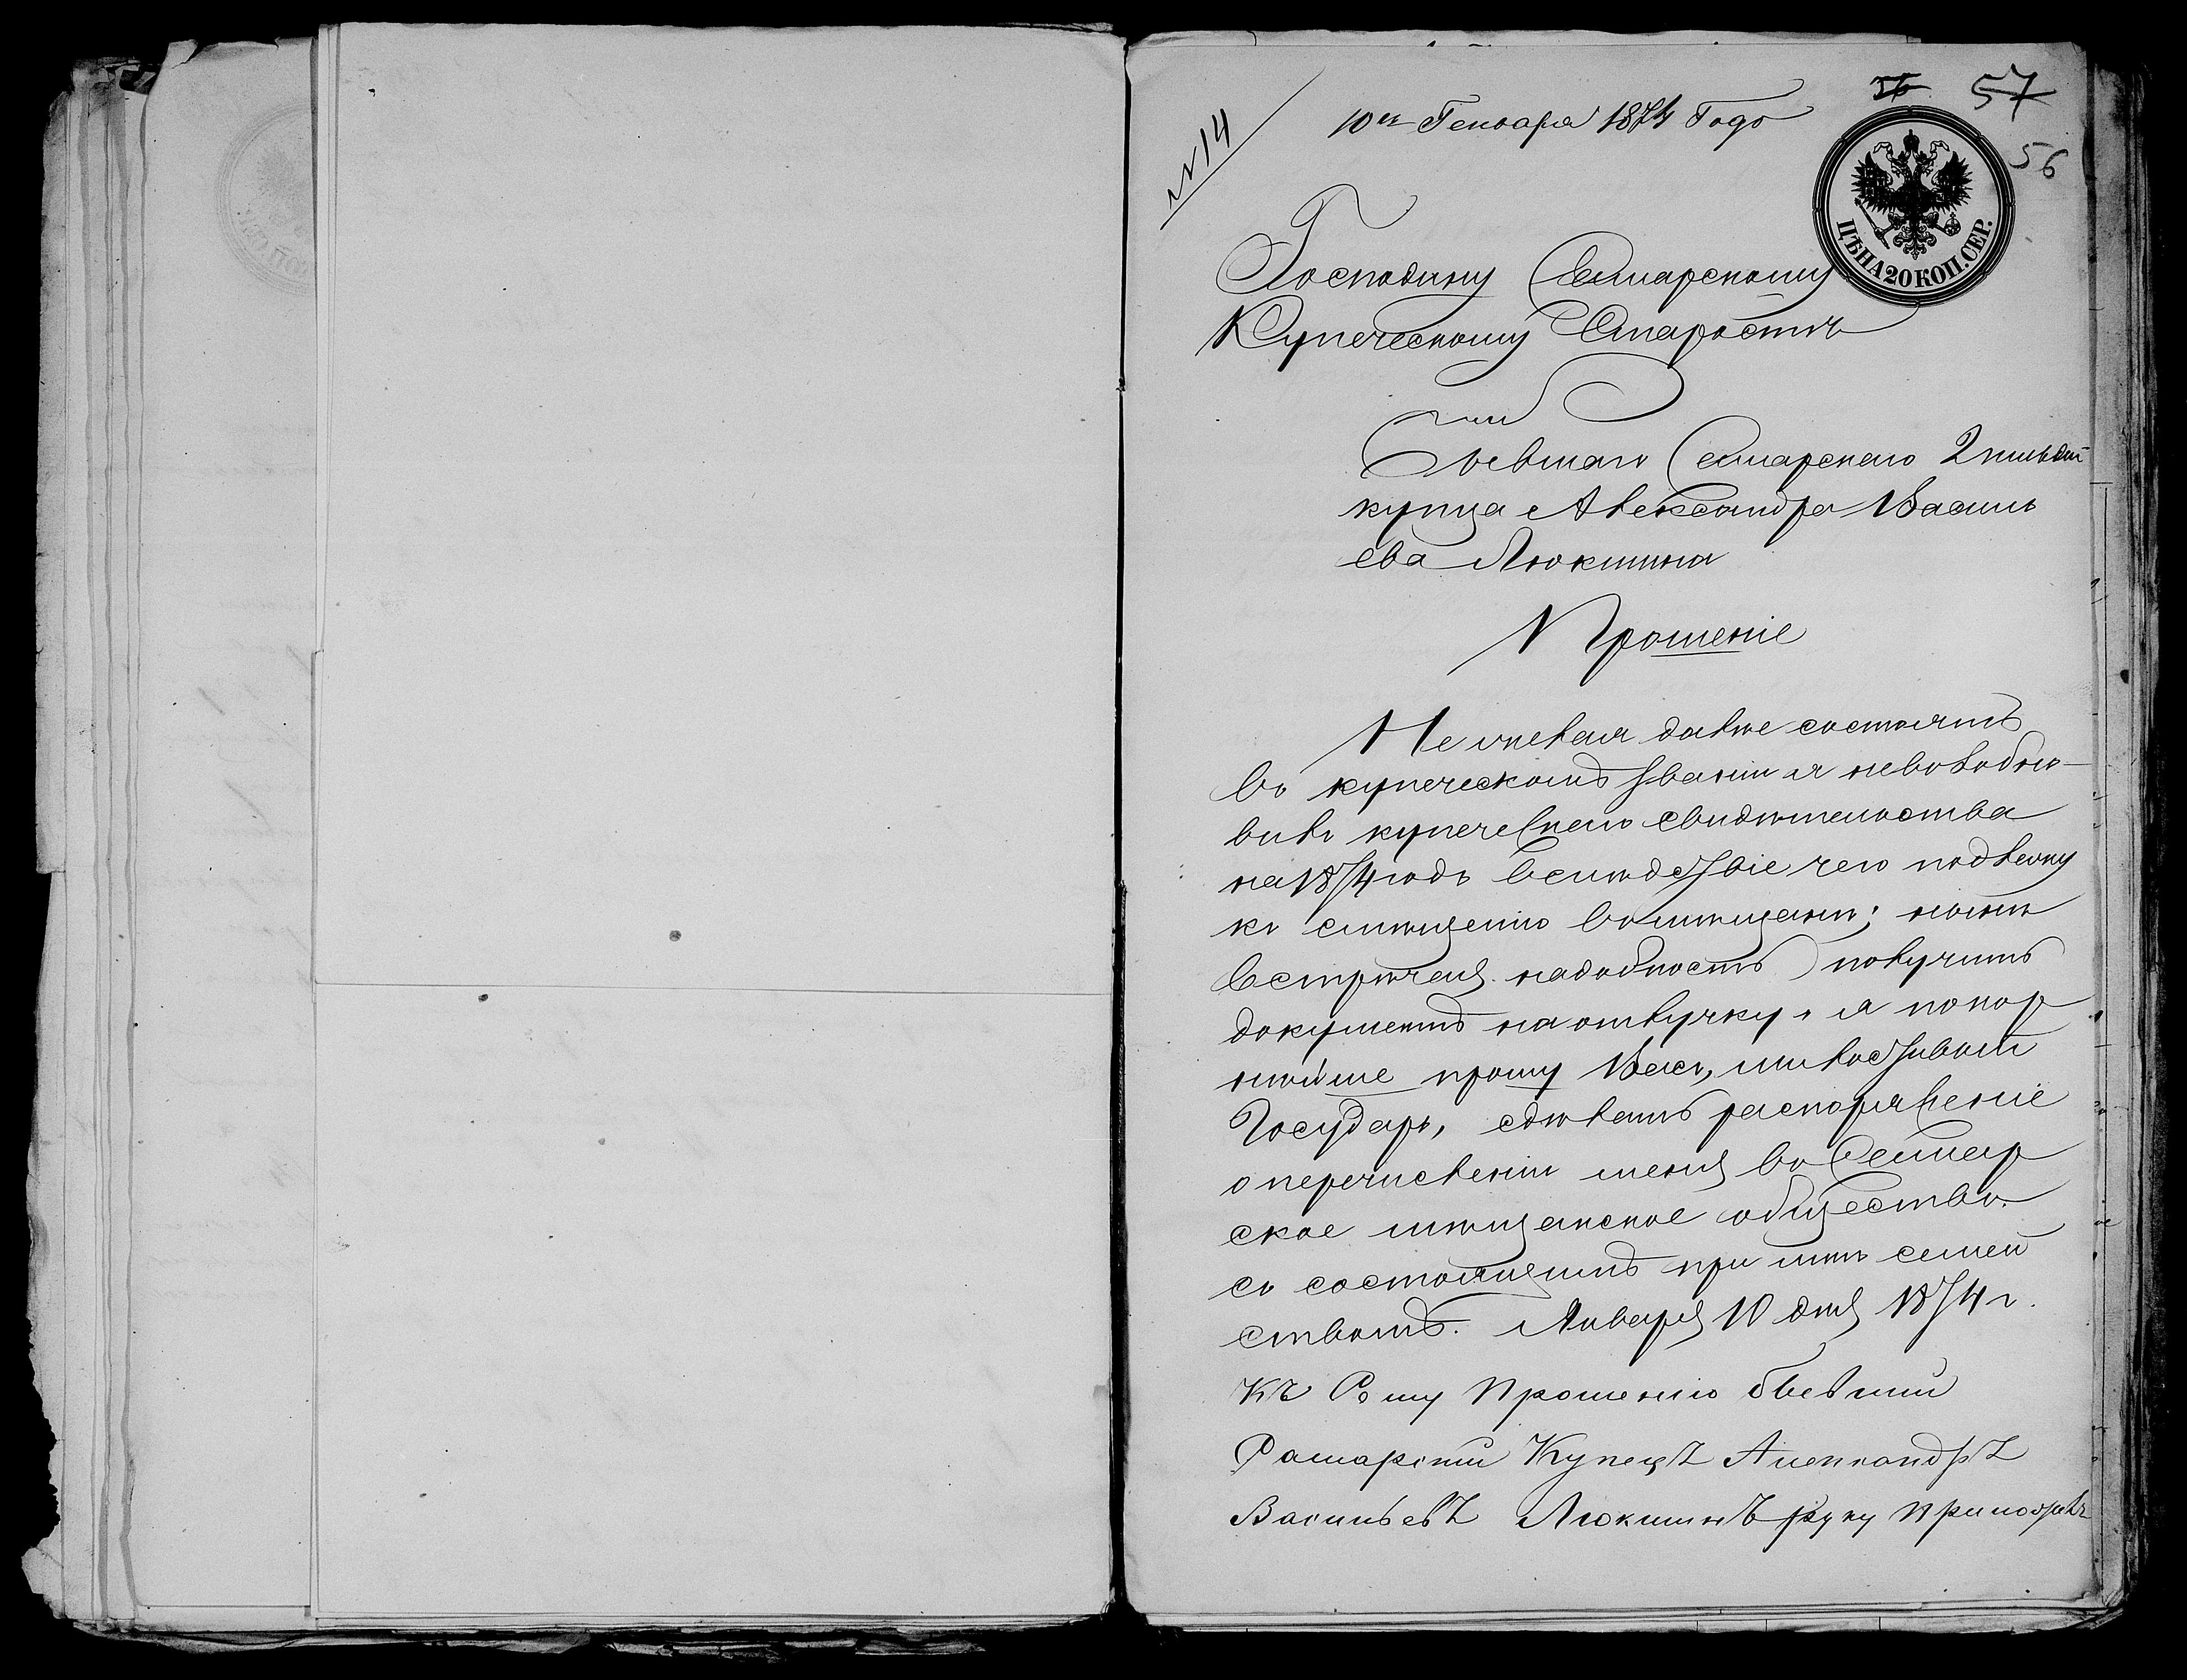 56 57
56
№ 14
10го Генваря 1874 Года
ЦѢНА 20 КОП. СЕР.
Господину Самарскому
Купеческому Старостѣ
Бывшаго Самарскаго 2 гильдіи
купца Александра Василь
ева Люкшина
Прошеніе
Не желая далѣе состоять
въ купеческомъ званіи я невозобно-
вилъ купеческаго свидѣтельства
на 1874 годъ вслѣдствіе чего подлежу
къ смѣщенію въ мѣщане; нынѣ
встрѣчая надобность получить
документъ на отлучку, я покор
нѣйше прошу Васъ, милостивый
Государь, сдѣлать распоряженіе
о перечисленіи меня въ Самар
ское мѣщанское общество
съ состоящимъ при мнѣ семей
ствомъ. Января 10 дня 1874 г.
Къ Сему Прошенію бывший
Самарский Купецъ Александръ
Васильевъ Люкшинъ руку приложилъ